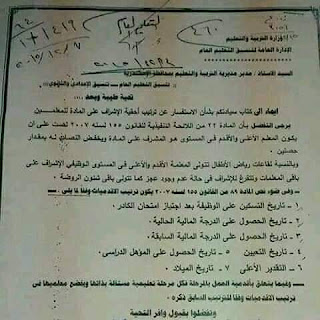 وزارة التربية والتعليم
الإدارة العامة لتنسيق التعليم العام
٤٦٠
السيد الأستاذ / مدير مديرية التربية والتعليم بمحافظة الإسكندرية
التعليم العام – تنسيق الإعدادى والثانوى
تحية طيبة وبعد ...
إيماء الى كتاب سيادتكم بشأن الاستفسار عن ترتيب أحقية الإشراف على المادة للمعلمين
يرجى التفضل بأن المادة ٢٢ من اللائحة التنفيذية للقانون ١٥٥ لسنة ٢٠٠٧ نصت على أن
يكون المعلم الأعلى والأقدم فى المستوى هو المشرف على المادة ويخفض النصاب له بمقدار
حصتين
وبالنسبة لقاعات رياض الأطفال تتولى المعلمة الأقدم والأعلى فى المستوى الوظيفى الإشراف على
باقى المعلمات وتتفرغ للإشراف فى حالة عدم وجود عجز كما تتولى باقى شئون الروضة
وفى ضوء نص المادة ٨٩ من القانون ١٥٥ لسنة ٢٠٠٧ يكون ترتيب الأقدميات وفقا لما يلى
١ – تاريخ التسكين على الوظيفة بعد اجتياز امتحان الكادر.
٢ – تاريخ الحصول على الدرجة المالية الحالية.
٣ – تاريخ الحصول على الدرجة المالية السابقة
٤ – تاريخ التعيين
٥ – تاريخ الحصول على المؤهل الدراسى.
٦ – التقدير الأعلى
٧ – تاريخ الميلاد.
وفيما يتعلق بأقدمية العمل بالمرحلة فكل مرحلة تعليمية مستقلة بذاتها ويخضع معلميها فى
ترتيب الأقدميات وفقا للترتيب السابق ذكره.
وتفضلوا بقبول وافر التحية